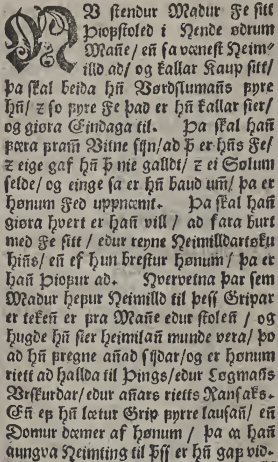 NU stendur Madur Fe sitt
Þiofstoled i Hende ødrum
Mañe/ eñ sa vænest Heim-
illd ad/ og kallar Kaup sitt/
þa skal beida hñ Vørdslumañs fyre
hñ/ z so fyre Fe þad er hñ kallar sier/
og giøra Eindaga til. Þa skal hañ
færa fram Vitne sijn/ ad þ er hñs Fe/
z eige gaf hñ þ nie galldt/ z ei Solum
selde/ og einge sa er hñ baud um/ þa er
hønum Fed uppnæmt. Þa skal hañ
giøra hvert er hañ vill/ ad fara burt
med Fe sitt/ edur reyne Heimilldartøku
hiñs/ eñ ef hun brestur hønum/ þa er
hañ Þiofur ad. Hvervetna þar sem
Madur hefur Heimilld til þess Gripar
er tekeñ er fra Mañe edur stoleñ/ og
hugde hñ sier heimilañ munde vera/ þo
ad hñ fregne añad sijdar/ og er hønum
riett ad hallda til Þings/ edur Løgmañs
Vrskurdar/ edur añars rietts Ransaks.
Eñ ef hñ lætur Grip fyrre lausañ/ eñ
Domur dæmer af hønum/ þa a hañ
aungva Heimting til þss er hñ gaf vid.